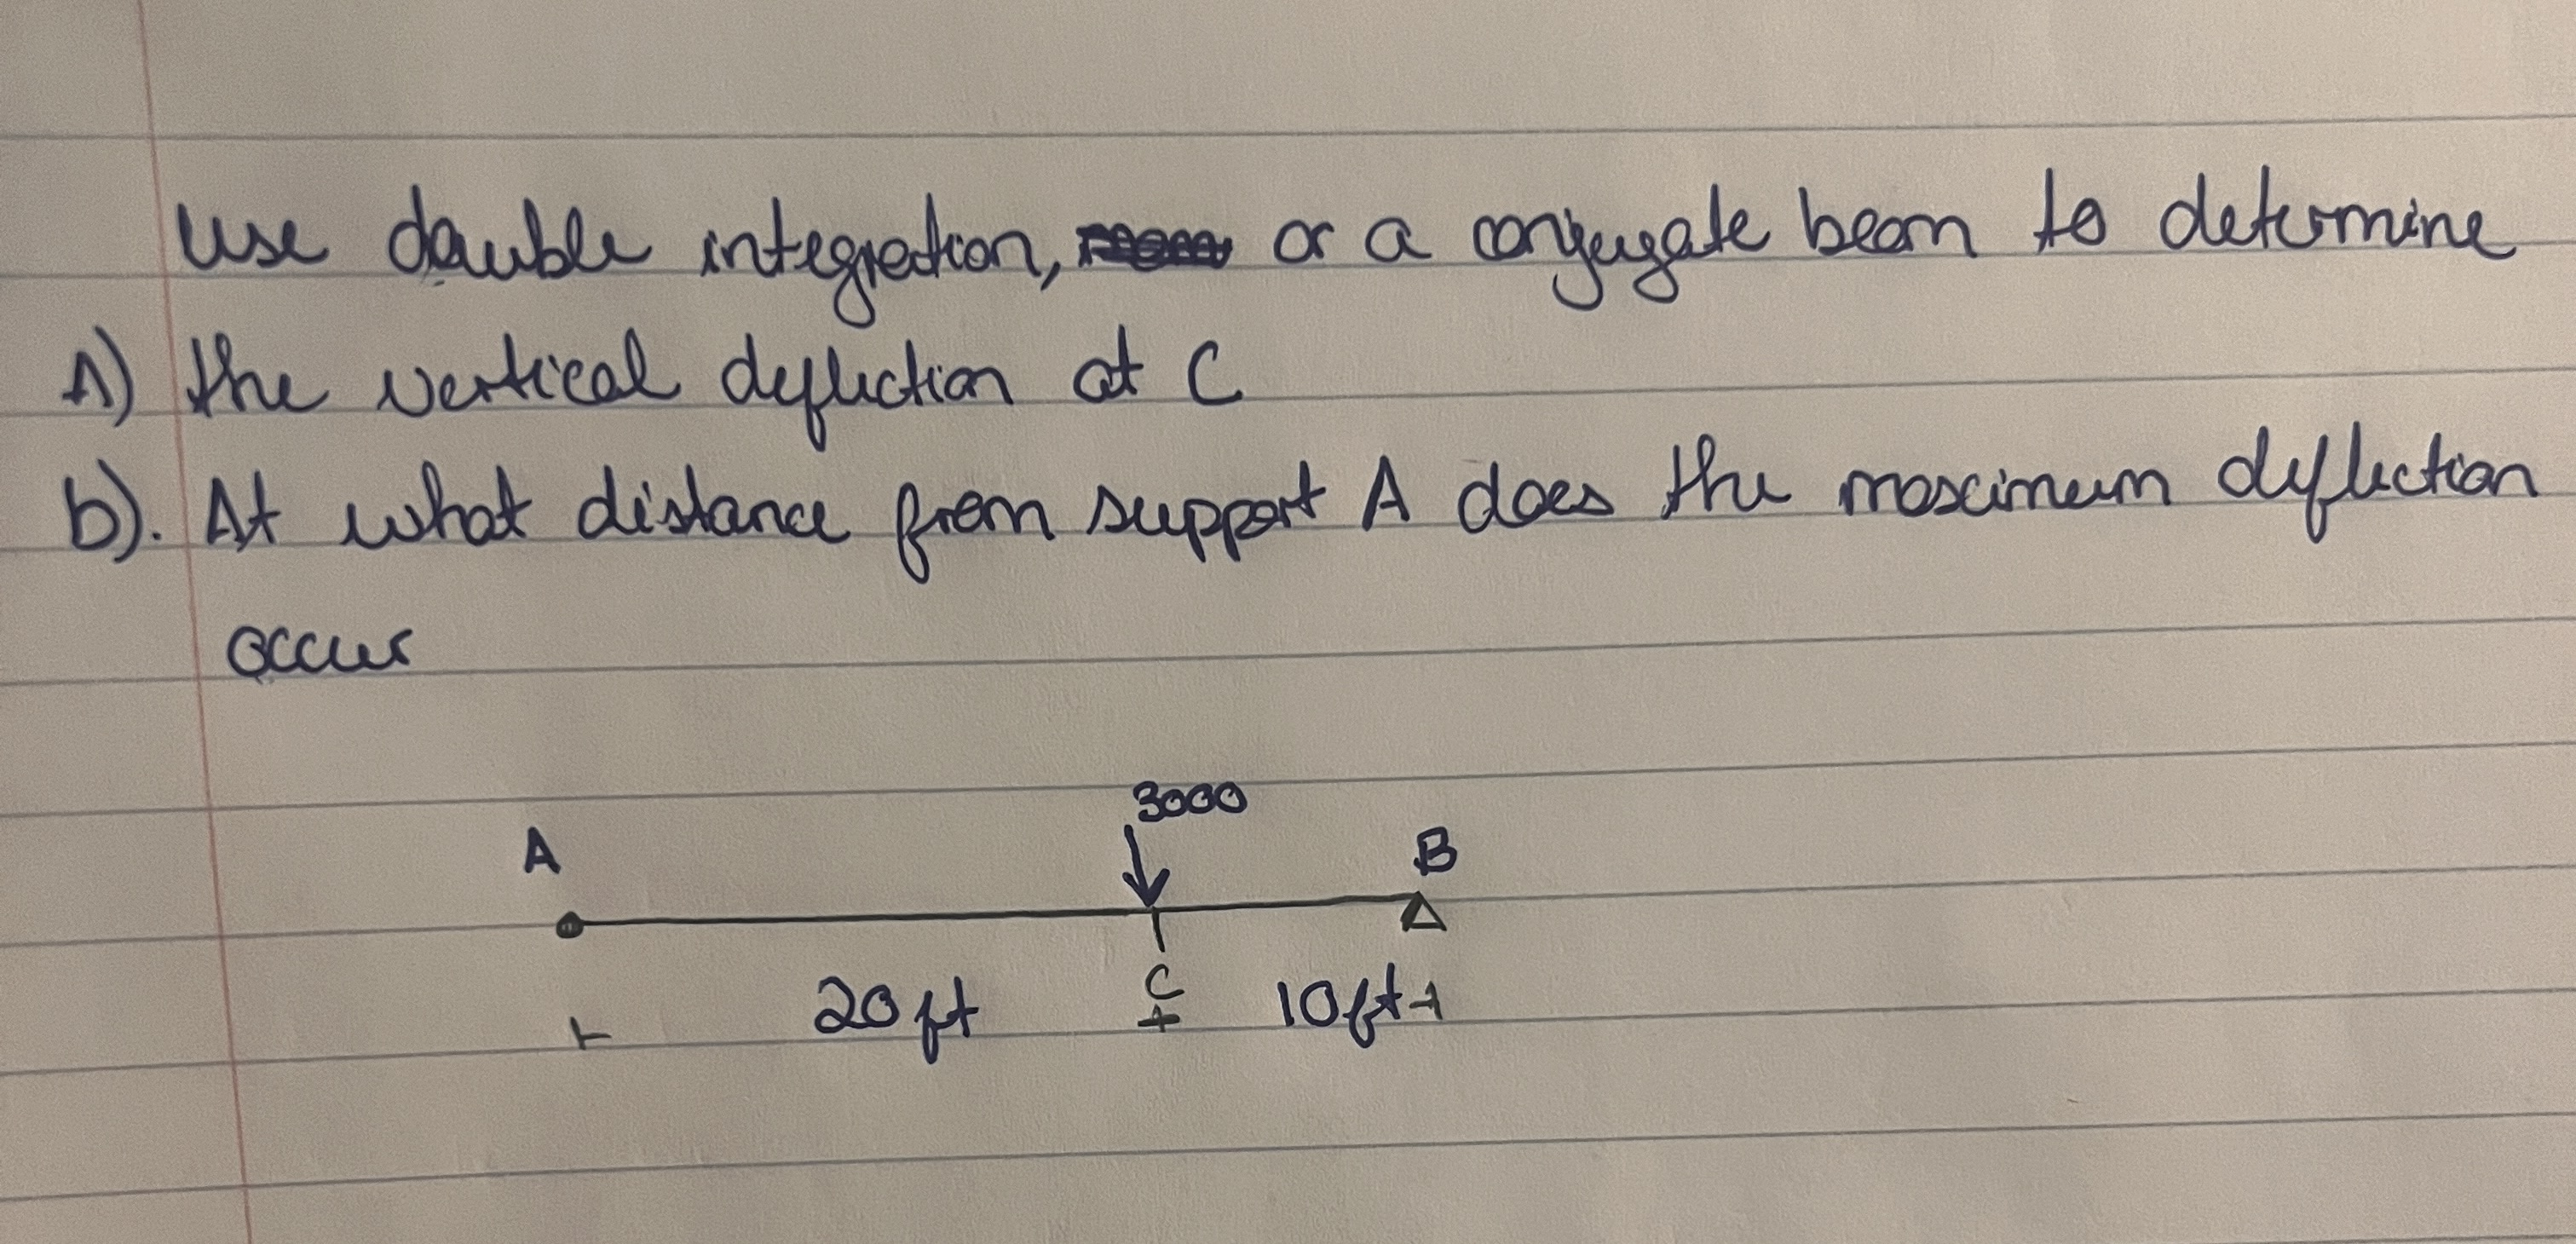 Use double integration, or a conjeugate beam to determine
A) the vertical deflection at C
b). At what distance from support A does the maximum deflection
occur
3000
A B
C
20 ft 10ft